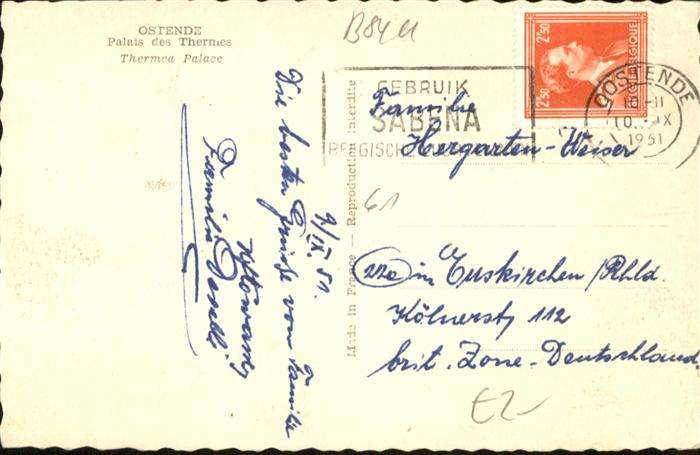 OSTENDE
Palais des Thermes
Thermea Palace
B8411
Die besten Grüße von Familie
Familie
9/IX.51.
Made in France — Reproduction interdite
GEBRUIK
SABENA
BELGISCHE
2.50
2.50
BELGIE-BELGIQUE
OOSTENDE
1951
Familie
Hergarten-Weiser
61
(22a) in Euskirchen/Rhld.
Kölnerstr 112
brit. Zone-Deutschland
EZ